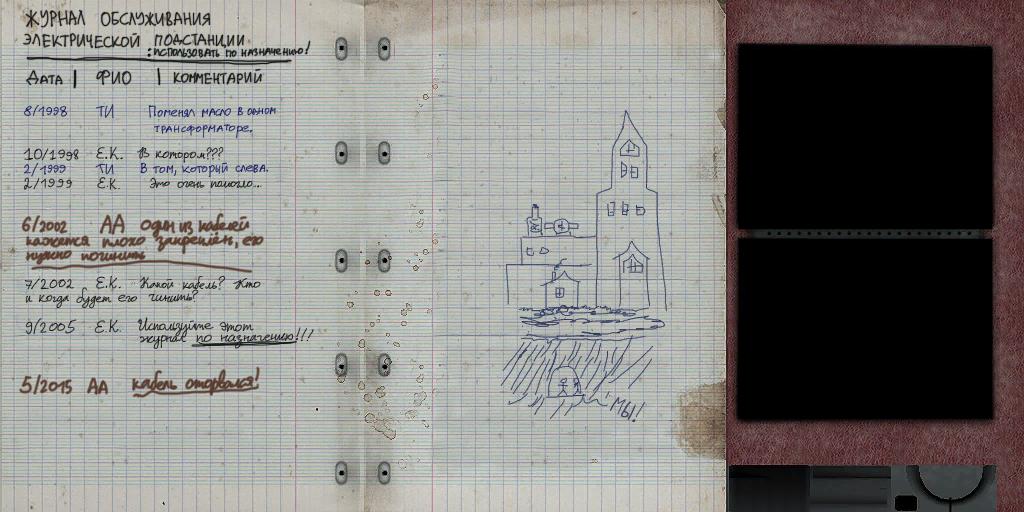 ЖУРНАЛ ОБСЛУЖИВАНИЯ
ЭЛЕКТРИЧЕСКОЙ ПОДСТАНЦИИ
:ИСПОЛЬЗОВАТЬ ПО НАЗНАЧЕНИЮ!
ДАТА | ФИО | КОММЕНТАРИЙ
8/1998 ТИ Поменял масло в одном
трансформаторе.
10/1998 Е.К. В котором???
2/1999 ТИ В том, который слева.
2/1999 Е.К. Это очень помогло...
6/2002 АА один из кабелей
кажется плохо закреплён, его
нужно починить
7/2002 Е.К. Какой кабель? Кто
и когда будет его чинить?
9/2005 Е.К. Используйте этот
журнал по назначению!!!
5/2015 АА кабель оторвался!
МЫ!